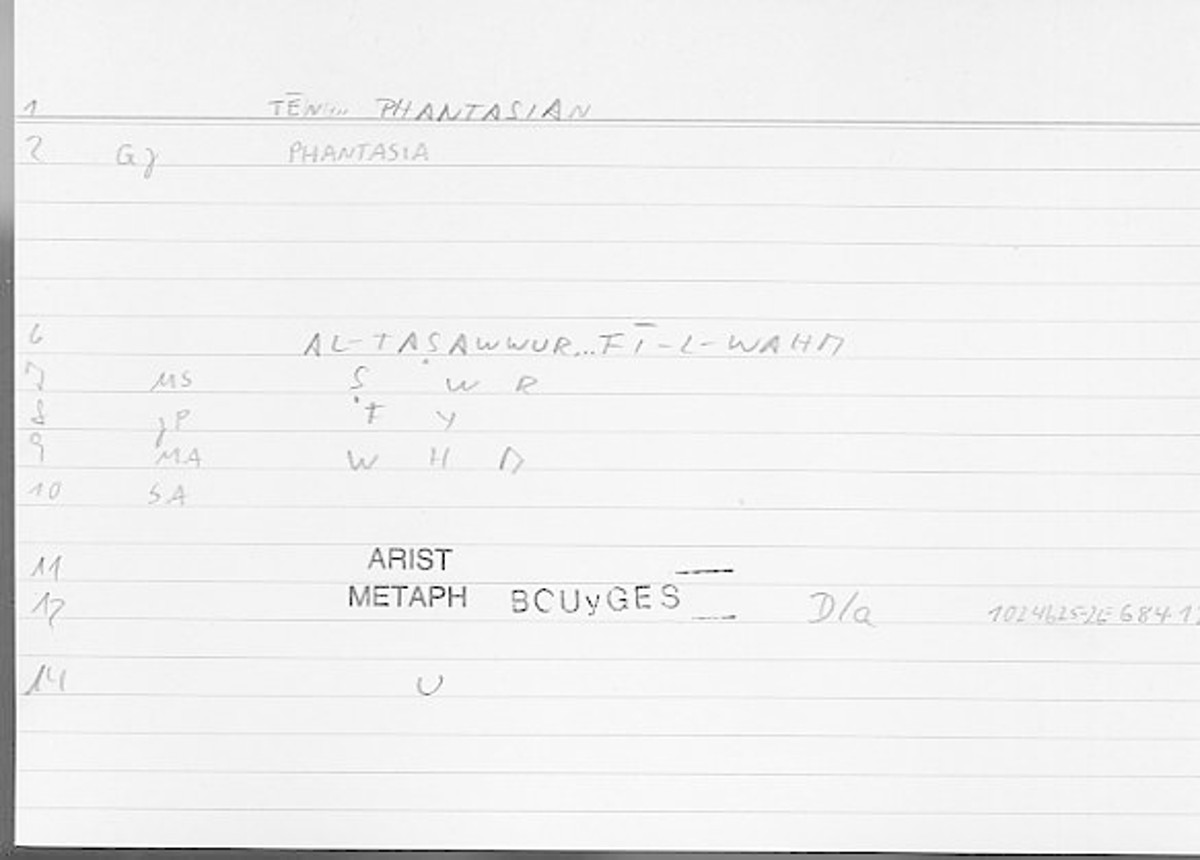 1 TĒN... PHANTASIAN
2 Gj PHANTASIA
6 AL-TAṢAWWUR...FĪ-L-WAHM
7 MS Ṣ W R
8 jP F Y
9 MA W H M
10 SA
11 ARIST
12 METAPH BOUyGES D/a
14 U